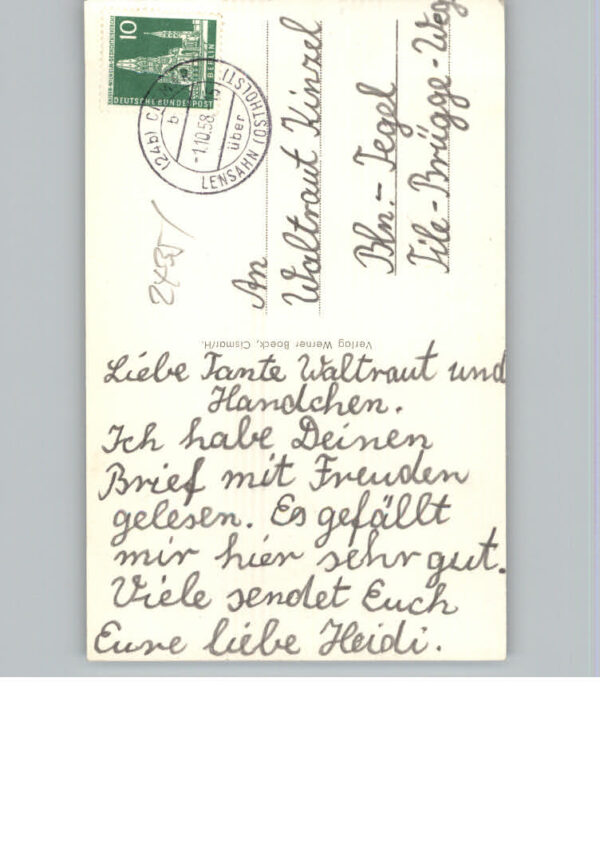 10
BERLIN
DEUTSCHE BUNDESPOST
(24b)
b
-1.10.58
über
LENSAHN (OSTHOLST)
2435/
An
Waltraut Kinzel
Bln.-Tegel
Tile-Brügge-Weg
Verlag Werner Boeck, Cismar/H.
Liebe Tante Waltraut und
Handchen.
Ich habe Deinen
Brief mit Freuden
gelesen. Es gefällt
mir hier sehr gut.
Viele sendet Euch
Eure liebe Heidi.